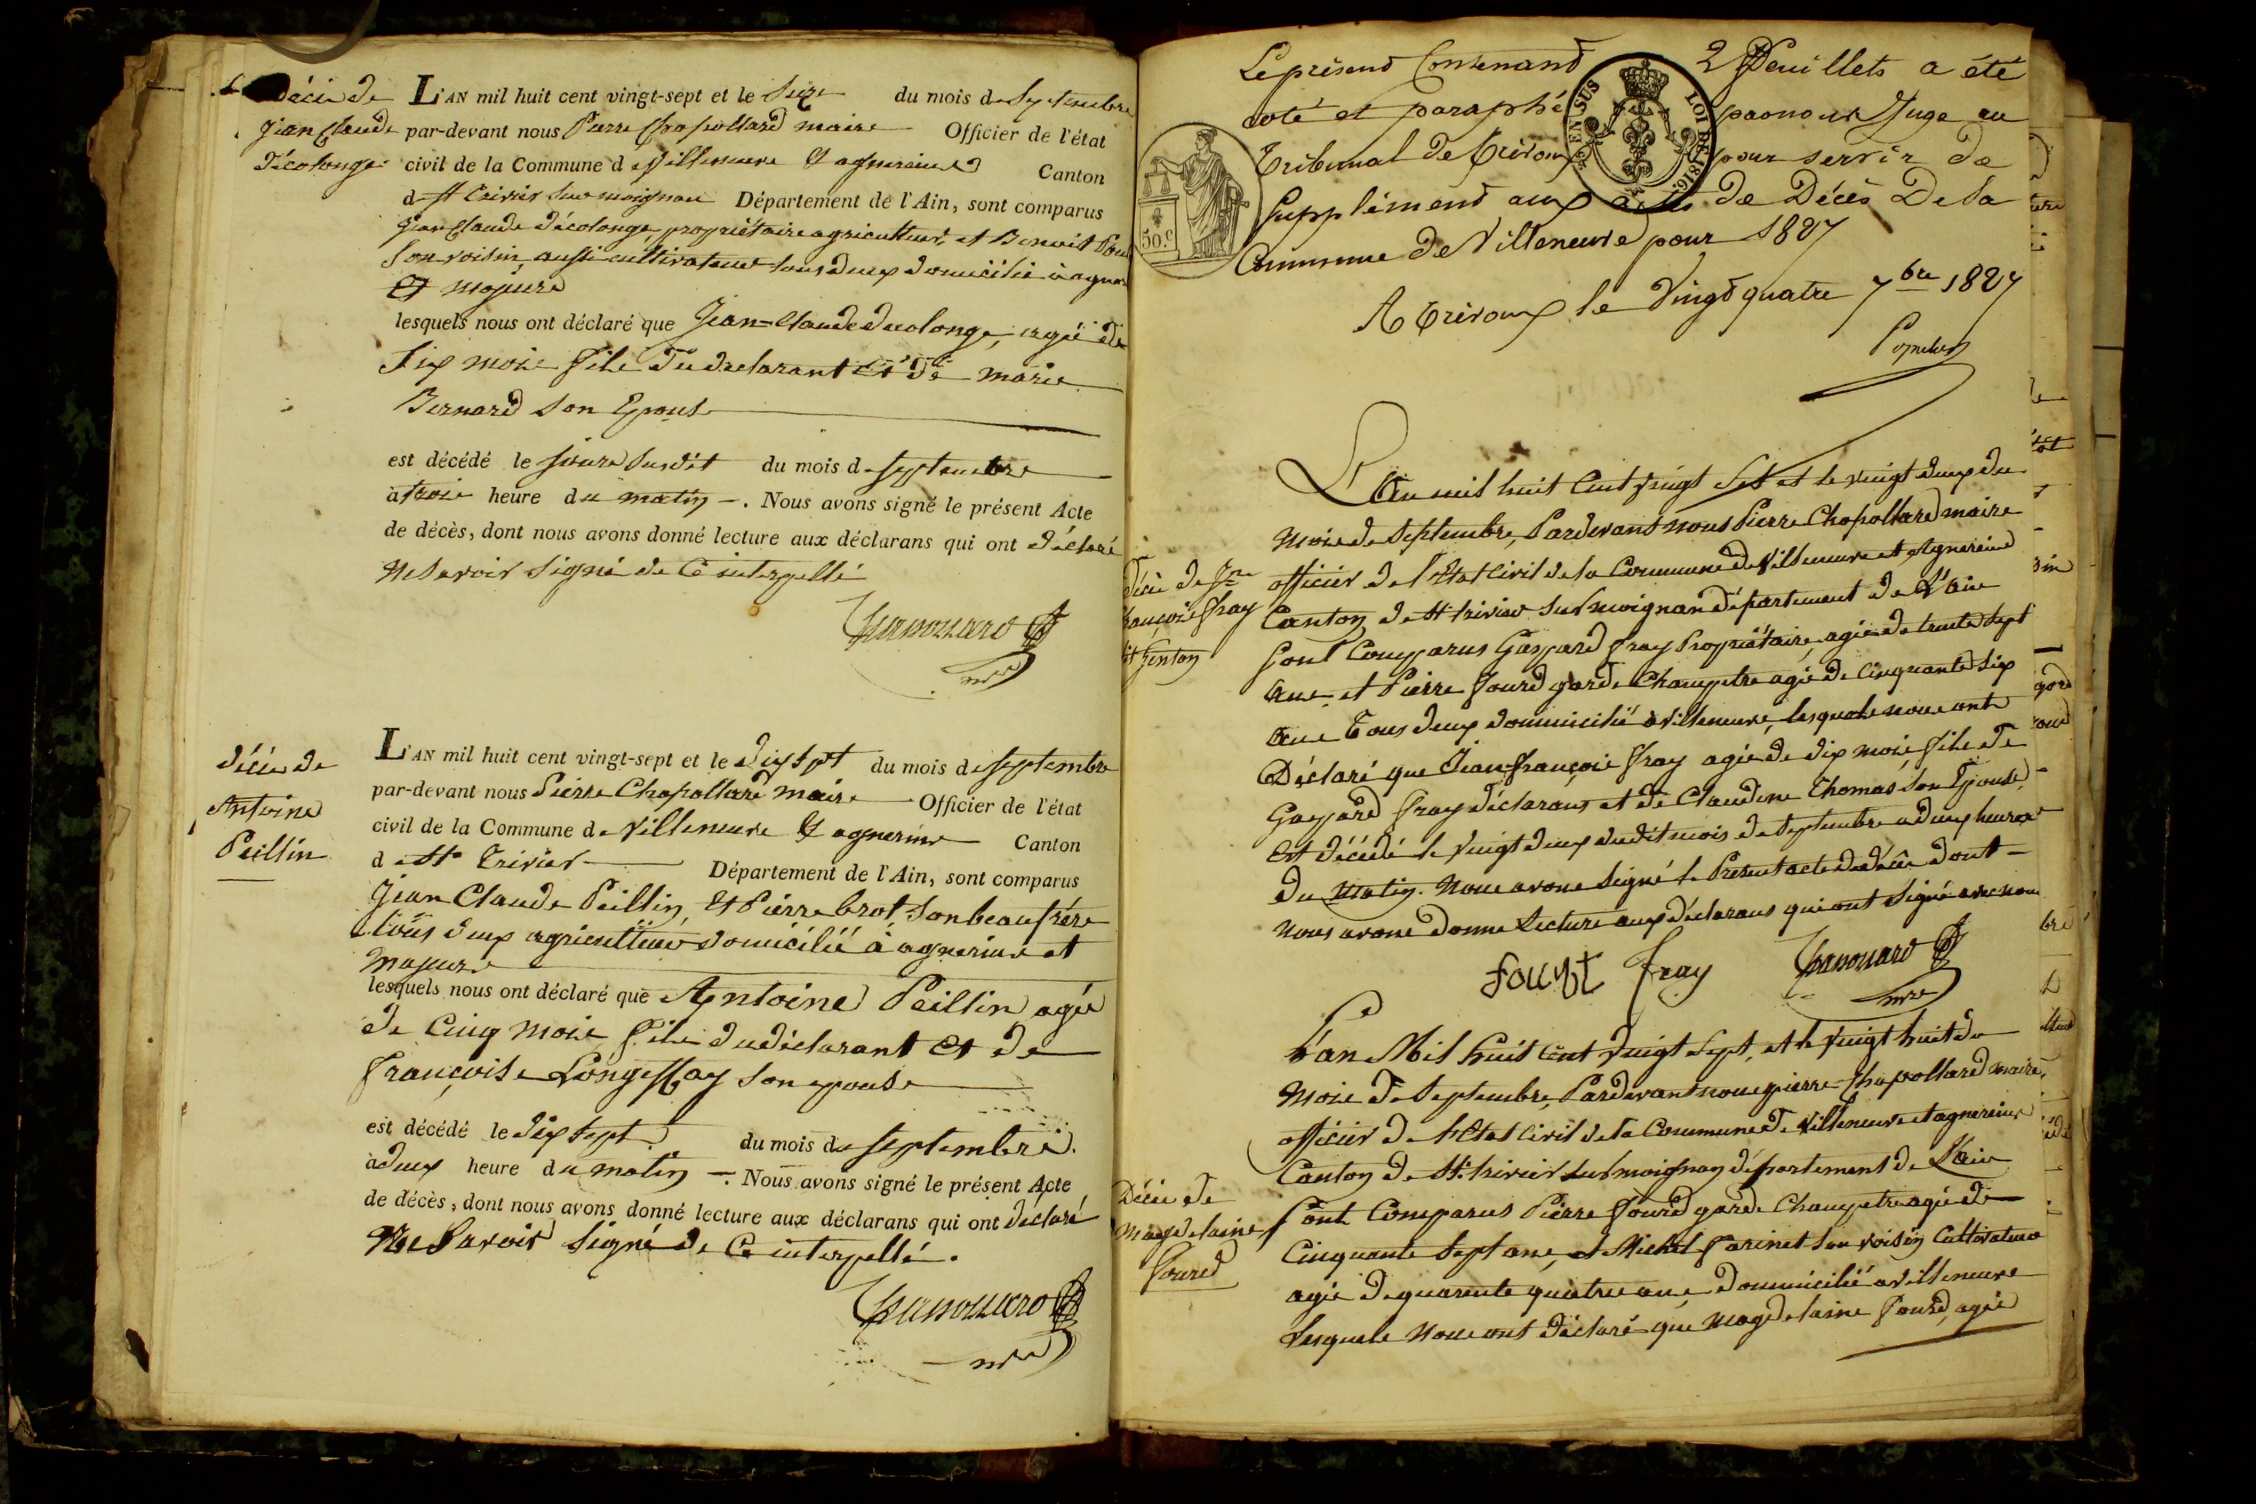 Décès de
Jean Claude
Décolonge
L'AN mil huit cent vingt-sept et le Seize du mois de Septembre
par-devant nous Pierre Chapollard maire Officier de l'état
civil de la Commune de Villeneuve & agnereins Canton
de St Trivier sur moignan Département de l'Ain, sont comparus
Jean Claude Décolonge, propriétaire agriculteur, et Benoit
Son voisin aussi cultivateur tous deux domicilié à
Et majeurs
lesquels nous ont déclaré que Jean-Claude ducolonge, agé de
Six mois fils du declarant Et de marie
Bernard son Epouse
est décédé le jour susdit du mois de septembre
à trois heure du matin. Nous avons signé le présent Acte
de décès, dont nous avons donné lecture aux déclarans qui ont déclaré
Ne Savoir Signé de Ce interpellé
Chapollard
mre
décès de
Antoine
Peillin
L'AN mil huit cent vingt-sept et le dix sept du mois de septembre
par-devant nous Pierre Chapollard maire Officier de l'état
civil de la Commune de Villeneuve & agnerins Canton
de St Trivier Département de l'Ain, sont comparus
Jean Claude Peillin, Et Pierre brot Son beaufrère
tous deux agriculteur domicilié à agnerins et
majeurs
lesquels nous ont déclaré que Antoine Peillin agée
de Cinq mois fils du déclarant Et de
françoise Longessay son epouse
est décédé le dix sept du mois de septembre.
à deux heure du matin. Nous avons signé le présent Acte
de décès, dont nous avons donné lecture aux déclarans qui ont déclaré
Ne Savoir Signé de Ce interpellé.
Chapollard
mre
Le présent Contenant 2 feuillets a été
coté et paraphé par nous Juge au
Tribunal de Trévoux pour servir de
Supplément aux actes de Décès De la
Commune de Villeneuve pour 1827
A Trévoux le Vingt quatre 7bre 1827
EN SUS LOI DE 1816.
50.c
L'An mil huit Cent vingt Sept et le vingt deux du
Mois de Septembre, Pardevant nous Pierre Chapollard maire
officier de l'Etat Civil de la Commune de Villeneuve et Agnereins
Canton de St trivier sur moignan département de L'ain
Sont Comparus Gaspard fray Propriétaire, agée de trente sept
Ans et Pierre foured garde Champetre agé de Cinquante Six
Ans Tous deux domicilié à Villeneuve, lesquels nous ont
Déclaré que Jean françois fray agée de dix mois fils de
Gaspard fray déclarant et de Claudine Thomas son Epouse
Est décédé le vingt deux dudit mois de septembre a deux heures
Du matin. Nous avons Signé le Présent acte de décès dont
Nous avons donne Lecture aux déclarans qui ont Signé avec nous
Décès de Jn
françois fray
fray
Chapollard
mre
L'an Mil huit cent vingt Sept, et le vingt huit du
Mois de Septembre, Pardevant nous pierre Chapollard maire,
officier de l'Etat Civil de la Commune de Villeneuve et agnereins
Canton de St. trivier sur moignan département de L'ain
Sont Comparus Pierre foured garde Champetre agé de
Cinquante Sept ans, et Michel farinet son voisin Cultivateur
agé de quarente quatre ans domicilié a villeneuve
Lesquels Nous ont déclaré que magdelaine foured, agée
Décès de
magdelaine
foured